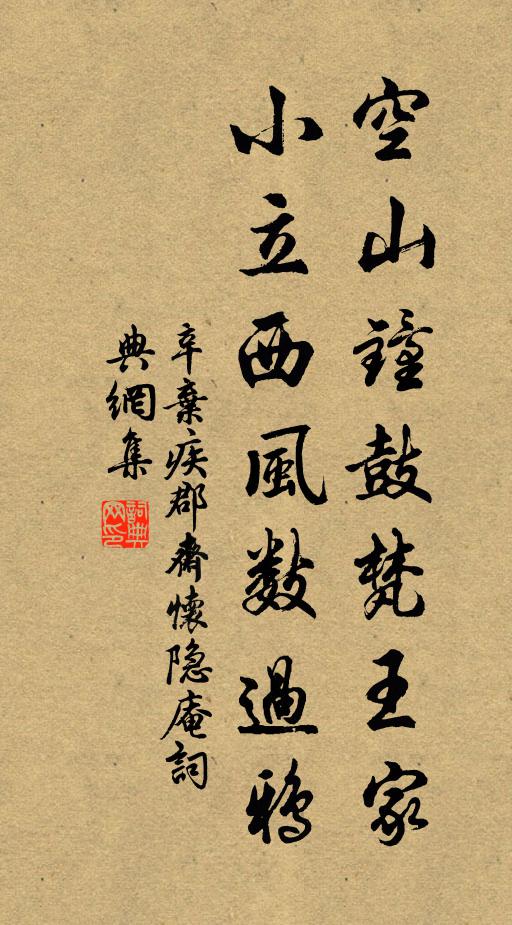 空山鐘鼓梵王家
小立西風數過鴉
辛棄疾郡齋懷隐庵詞
典網集
詞典
网印